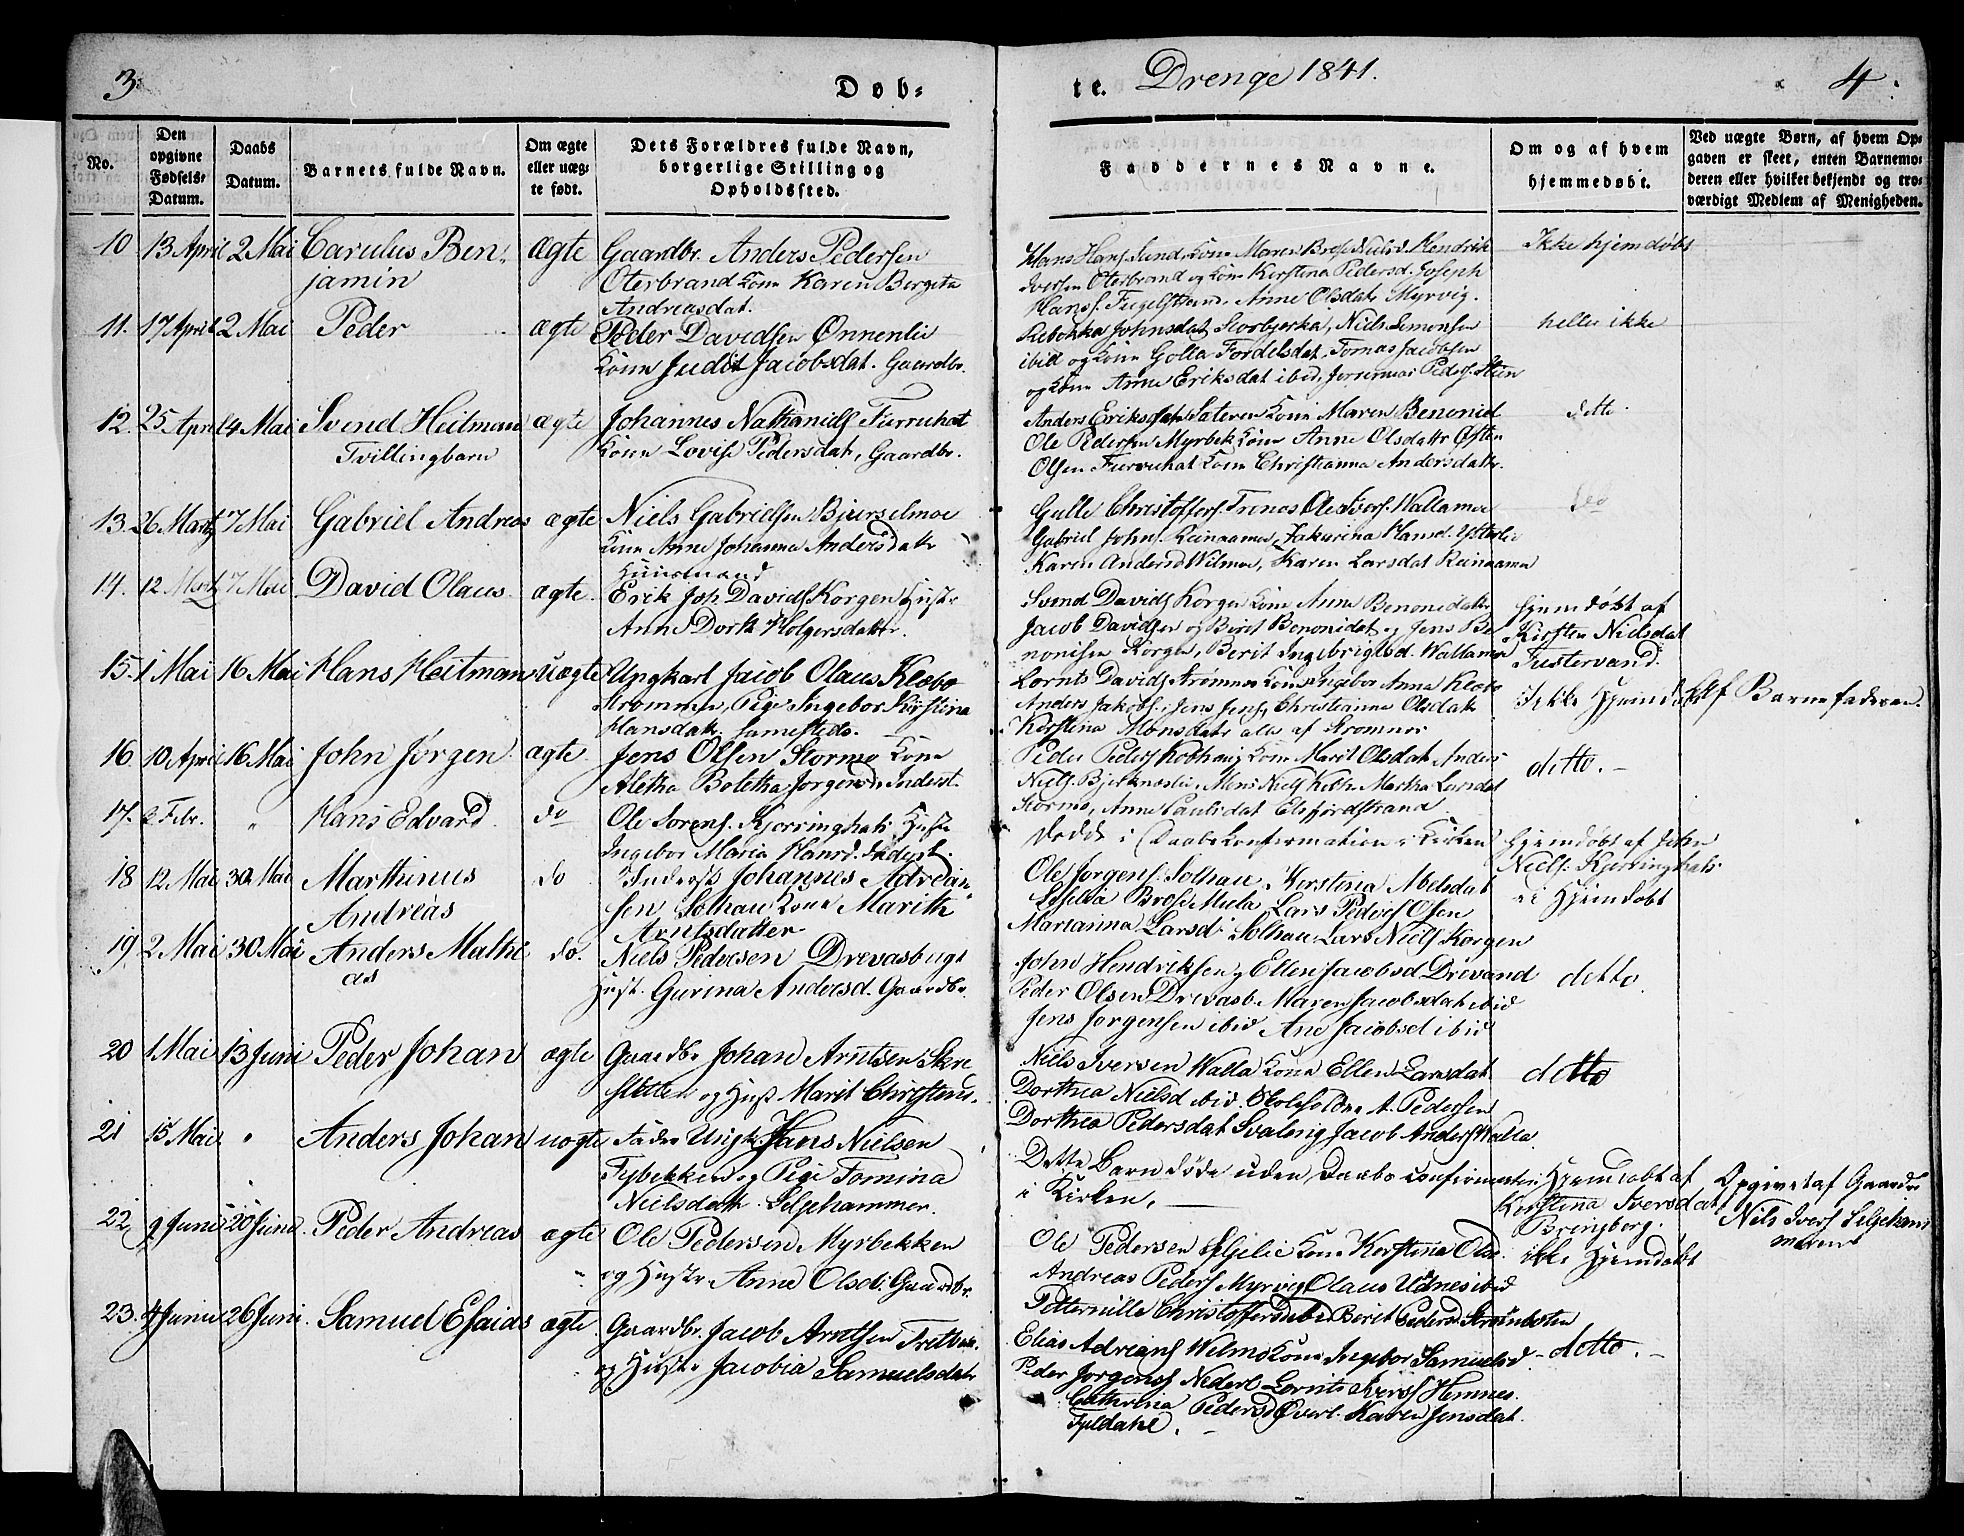 3.
Døb-
te. Drenge 1841.
4.
No.
Den opgivne Fødsels-Datum.
Daabs Datum.
Barnets fulde Navn.
Om ægte eller uæg-te født.
Dets Forældres fulde Navn, borgerlige Stilling og Opholdssted.
Faddernes Navne.
Om og af hvem hjemmedøbt.
Ved uægte Børn, af hvem Op-gaven er skeet, enten Barnemo-deren eller hvilket bekjendt og tro-værdigt Medlem af Menigheden.
10 13 April 2 Mai Carulus Ben-
jamin
Ægte
Gaardbr. Anders Pedersen
Oterbrand Kone Karen Bergita
Andreasdat.
Hans Hans. Sund, Kone Maren Hendrik
Iversen Oterbrand og Kone Kerstina Pedersd. Joseph
Hans. Anne Olsdatr Myrvig.
Ikke hjemdøbt
11. 17 April 2 Mai Peder
ægte
Peder Davidsen Onnenlie
Kone Judit Jacobsdat. Gaardbr.
Rebekka Johnsdat Storbjerka, Niels Simonsen
ibid og Kone Golla Fordelsdat, Tomas Jacobsen
og Kone Anne Eriksdat ibid, Peders.
heller ikke
12. 25 April 4 Mai Svend Heitman
Tvillingbarn
ægte
Johannes Nathaniels Furruhat
Kone Lovise Pedersdat, Gaardbr.
Anders Eriks Kone Maren Benonid
Ole Pedersen Myrbek Kone Anne Olsdattr Østen
Olsen Furruhat Kone Christianna Andersdattr.
detto.
13. 26 Martz 7 Mai Gabriel Andreas
ægte
Niels Gabrielsen Bjurselmoe
Kone Anne Johanna Andersdatr
Huusmand
Gulle Christoffers. Wallamo
Gabriel John. Reinaamo, Jakurina Hansd.
Karen Andersd Wilmoe, Karen Larsdat Reinaamo
do
14. 12 Martz 7 Mai David Olaus
ægte.
Erik Joh Davids Korgen Hustr
Anne Dorth Holgersdattr.
Svend Davids Korgen Kone Anne Benonidattr
Jacob Davidsen og Berit Benonidat og Jens Be-
nonisen Korgen, Berit Ingebrigtsd. Wallamo
Hjemdøbt af
Kirsten Nielsdat
Fustervand.
15. 1 Mai 16 Mai Hans Heitman
uægte
Ungkarl Jacob Olaus Klæbo
Strømmen, Pige Ingebor Kirstina
Hansdatr. sammesteds.
Lornts Davids Strømmen Kone Ingebor Anna Klæbo
Anders Jakobs, Jens Jens, Christianna Olsdatr
Kerstina Monsdatr alle af Strommen
Ikke Hjemdøbt
Af Barnefaderen.
16. 10 April 16 Mai John Jørgen
ægte.
Jens Olsen Stormo Kone
Aletha Boletha Jorgensd. Inderst.
Peder Peders Kobhaug Kone Marit Olsdat Anders
Niels. Bjerknæslie, Mons Niels Martha Larsdat
Stormo, Anne Paulsdat Elsfjordstrand
ditto.
17. 2 Febr. " Hans Edvard
do
Ole Sorens. Kjorringhals Hustr
Ingebor Maria Hansd. Inderst.
Dødde i Daabs Konfirmation i Kirken
Hjemdøbt af John
Niels. Kjerringhals
18 12 Mai 30 Mai Marthinus
Andreas
do
Inderst Johannes Adrean-
sen Solhau Kone Marith
Arntsdatter
Ole Jorgens. Solhau, Kerstina Melsdat
Lars Peders Osen
Marianna Larsd. Solhau. Lars Niels Korgen
ei Hjemdøbt
19 2 Mai 30 Mai Anders Mathi
as
do.
Niels Pedersen Drevasbugt
Hust. Gurina Andersd. Gaardbr.
John Hendriksen, Ellen Jacobsd Drevand
Peder Olsen Drevasb. Maren Jacobsdat ibid
Jens Jorgensen ibid Ane Jacobsd ibid
ditto.
20 1 Mai 13 Juni Peder Johan
ægte
Gaardbr Johan Arntsen Skre
sletten og Hust Marit Christens.
Niels Iversen Walla Kone Ellen Larsdat
Dorthea Nielsd ibid. Skoleholder A. Pedersen
Dorthea Pedersdat Svaleng Jacob Anders Walla
ditto
21 15 Mai " Anders Johan
uægte
Fader Ungk: Hans Nielsen
Tybekken og Pige Tomina
Nielsdatr. Seljehammer.
Dette Barn døde uden Daabs confirmation
i Kirken.
Hjemdøbt af
Kerstina Iversdat
Bringberg.
Opgivet af Gaardbr
Nils Ivers Seljeham
meren
22 9 Juni 20 Juni Peder Andreas
ægte
Ole Pedersen Myrbekken
og Hustr Anne Olsd. Gaardbr.
Ole Pedersen Kone Kerstina Olsd.
Andreas Peders Myrvig Olaus Utnes ibid
Petternille Christoffersd ibid Berit Pedersd Strømboten
ikke Hjemdøbt
23. 4 Junii 26 Juni Samuel Esaias
ægte
Gaardbr. Jacob Arntsen
og Hustr Jacobia Samuelsdatr
Elias Adrians Welmo Kone Ingebor Samuelsd
Peder Jorgens Nederl Lornts Ivers Hemnes.
Cathrina Pedersd Overl. Karen Jensdat.
Fyldahl.
ditto.